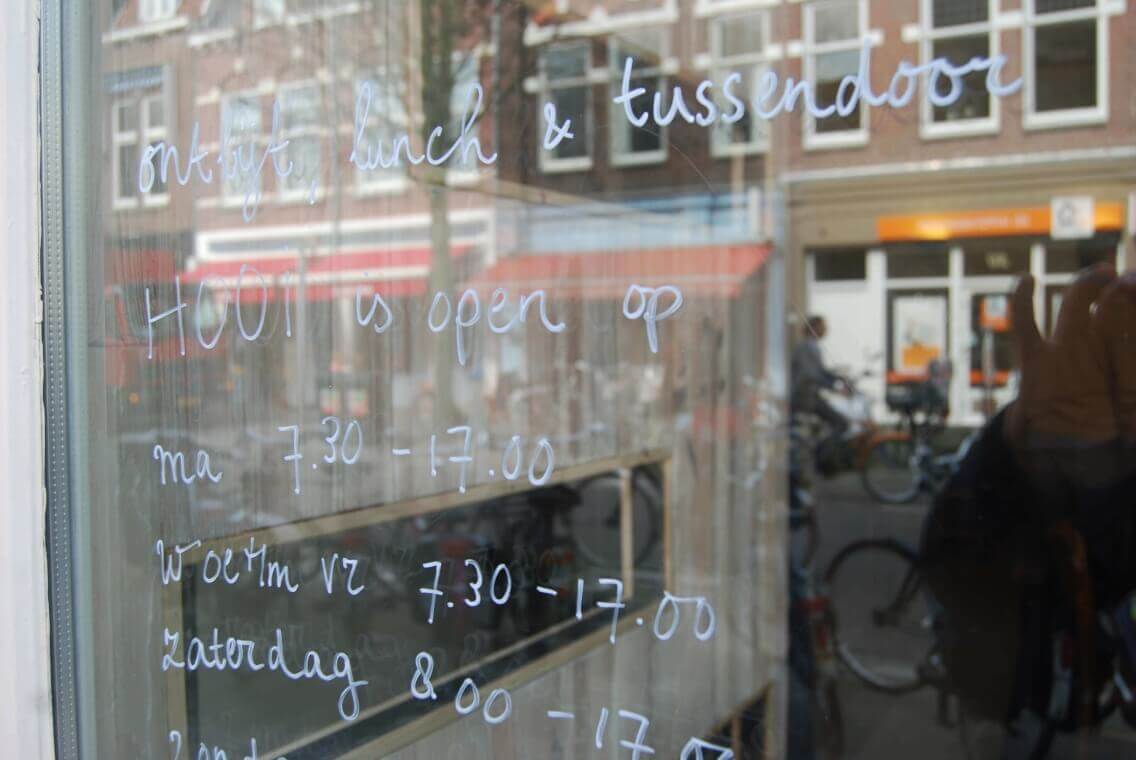 ontbyt, lunch & tussendoor
HOOI is open op
ma 7.30 - 17.00
woe t/m vr 7.30 - 17.00
zaterdag 8.00 - 17.00